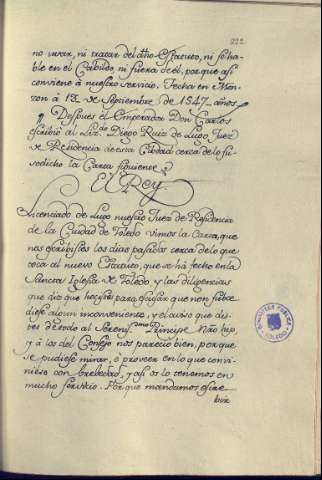 222
no usar, ni tratar del dho Estatuto, ni se ha-
ble en el Cabildo, ni fuera de él, porque así
conviene à nuestro servicio. Fecha en Mon-
zon à 13 de Septiembre de 1547 años.
Despues el Emperador Don Carlos
escribió al Liz.do Diego Ruiz de Lugo, Juez
de Residencia de esta Ciudad cerca de lo su-
sodicho la Carta siguiente
El Rey
Licenciado de Lugo nuestro Juez de Residencia
de la Ciudad de Toledo vimos la Carta, que
nos escribistes los dias pasados cerca de lo que
toca al nuevo Estatuto, que se há fecho en la
Sancta Iglesia de Toledo, y las diligencias
que diz que hecistes para escusar que non subce-
diese algun inconveniente, y el aviso que dis-
tes de todo al Seren.mo Principe Não hijo,
y à los del Consejo nos pareció bien, porque
se pudiese mirar, è proveer en lo que convi-
niese con brebedad, y asi os lo tenemos en
mucho servicio. Porque mandamos escre
bir
BIBLIOTECA PUBLICA
TOLEDO